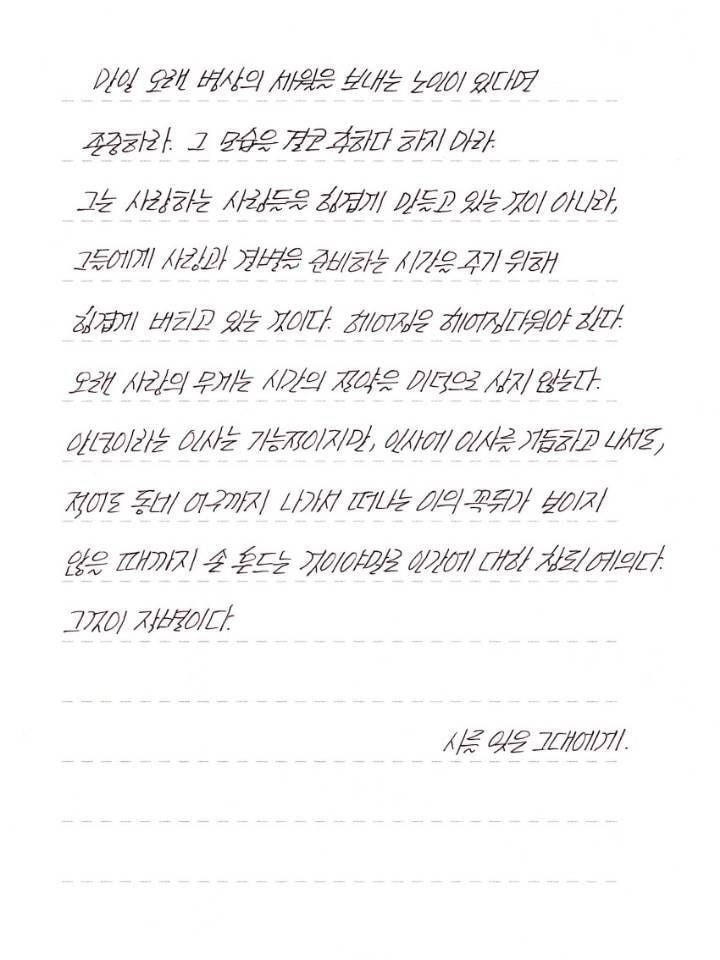 만일 오래 병상의 세월을 보내는 노인이 있다면
존중하라. 그 모습을 결코 추하다 하지 마라.
그는 사랑하는 사람들을 힘겹게 만들고 있는 것이 아니라,
그들에게 사랑과 결별을 준비하는 시간을 주기 위해
힘겹게 버티고 있는 것이다. 헤어짐은 헤어짐다워야 한다.
오래 사랑의 무게는 시간의 절약을 미덕으로 삼지 않는다.
안녕이라는 인사는 기능적이지만, 인사에 인사를 거듭하고 나서도,
적어도 동네 어귀까지 나가서 떠나는 이의 꼭뒤가 보이지
않을 때까지 손 흔드는 것이야말로 인간에 대한 참된 예의다.
그것이 작별이다.
시를 잊은 그대에게.